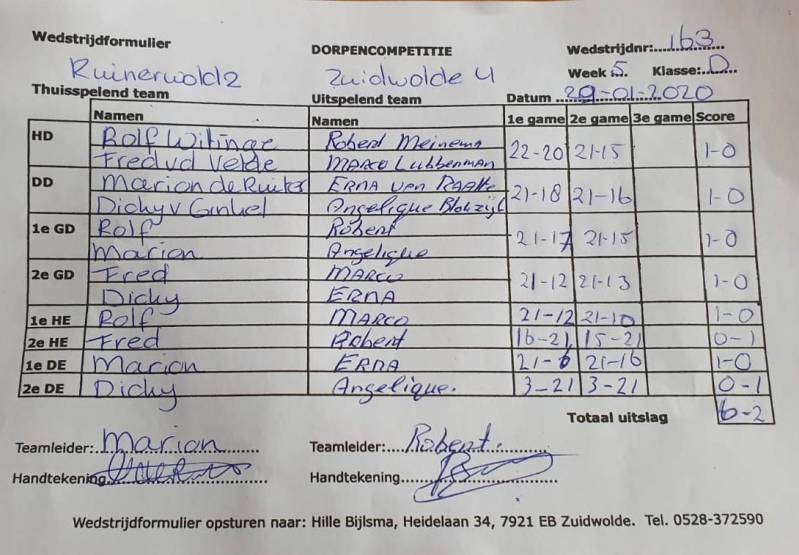 Wedstrijdformulier DORPENCOMPETITIE Wedstrijdnr:.....163
Ruinerwold 2 Zuidwolde 4 Week 5 Klasse:..D
Thuisspelend team Uitspelend team Datum 29-01-2020
Namen Namen 1e game 2e game 3e game Score
HD Rolf Witinge Robert Meinema 22-20 21-15 1-0
Fred vd Velde Marco Lubberman
DD Marion de Ruiter Erna van Raalte 21-18 21-16 1-0
Dichy v Ginkel Angelique Blokzijl
1e GD Rolf Robert 21-17 21-15 1-0
Marion Angelique
2e GD Fred Marco 21-12 21-13 1-0
Dichy Erna
1e HE Rolf Marco 21-12 21-10 1-0
2e HE Fred Robert 16-21 15-21 0-1
1e DE Marion Erna 21-6 21-16 1-0
2e DE Dichy Angelique. 3-21 3-21 0-1
Totaal uitslag 6-2
Teamleider: Marion Teamleider: Robert.
Handtekening Handtekening
Wedstrijdformulier opsturen naar: Hille Bijlsma, Heidelaan 34, 7921 EB Zuidwolde. Tel. 0528-372590